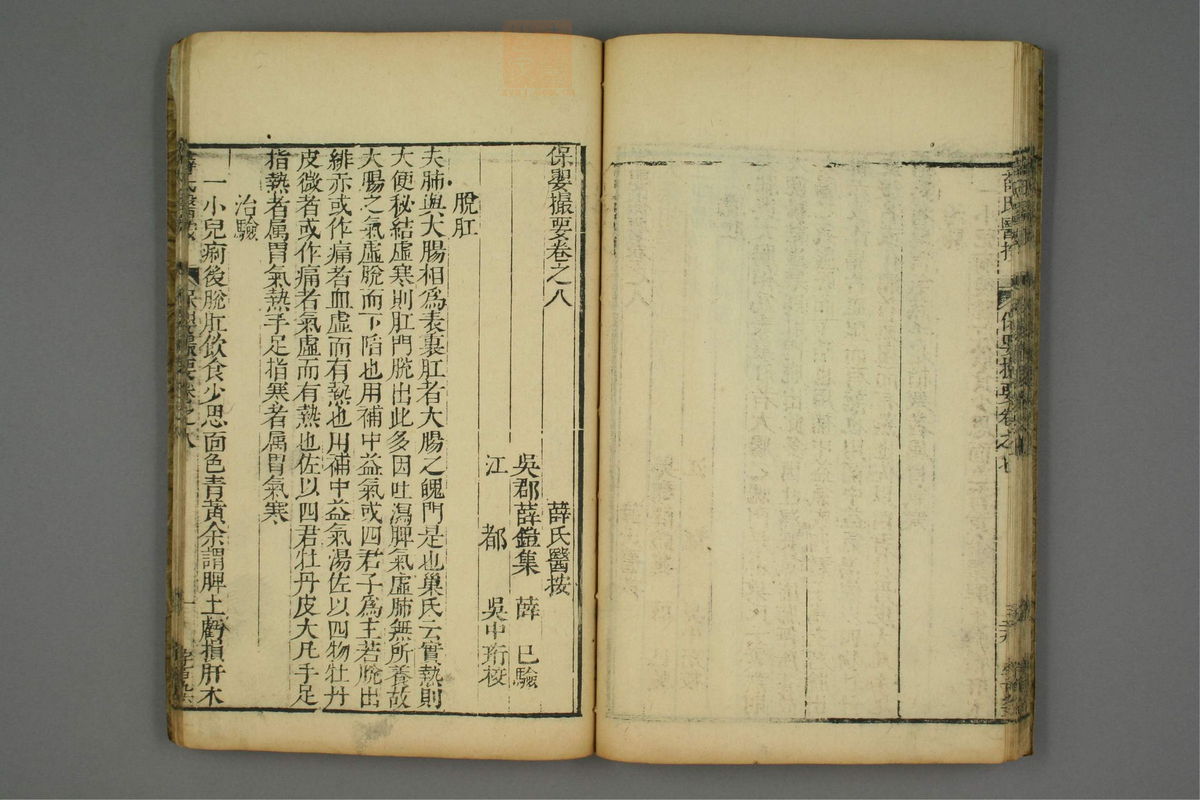 薛氏醫按
保嬰撮要卷之七
保嬰撮要卷之八
薛氏醫按
吳郡薛鎧集 薛 已驗
江 都 吳中珩校
脫肛
夫肺與大腸相為表裏肛者大腸之魄門是也巢氏云實熱則
大便秘結虛寒則肛門脫出此多因吐瀉脾氣虛肺無所養故
大腸之氣虛脫而下陷也用補中益氣或四君子為主若脫出
緋赤或作痛者血虛而有熱也用補中益氣湯佐以四物牡丹
皮微者或作痛者氣虛而有熱也佐以四君牡丹皮大凡手足
指熱者属胃氣熱手足指寒者属胃氣寒
治驗
一小兒痢後脫肛飲食少思面色青黃余謂脾土虧損肝木
薛氏醫按
保嬰撮要卷之八
一